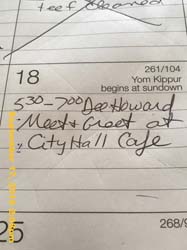 teet cleaned
18
261/104
Yom Kippur
begins at sundown
530-700 Dee Howard
Meet & Greet at
City Hall Cafe
25
268/9